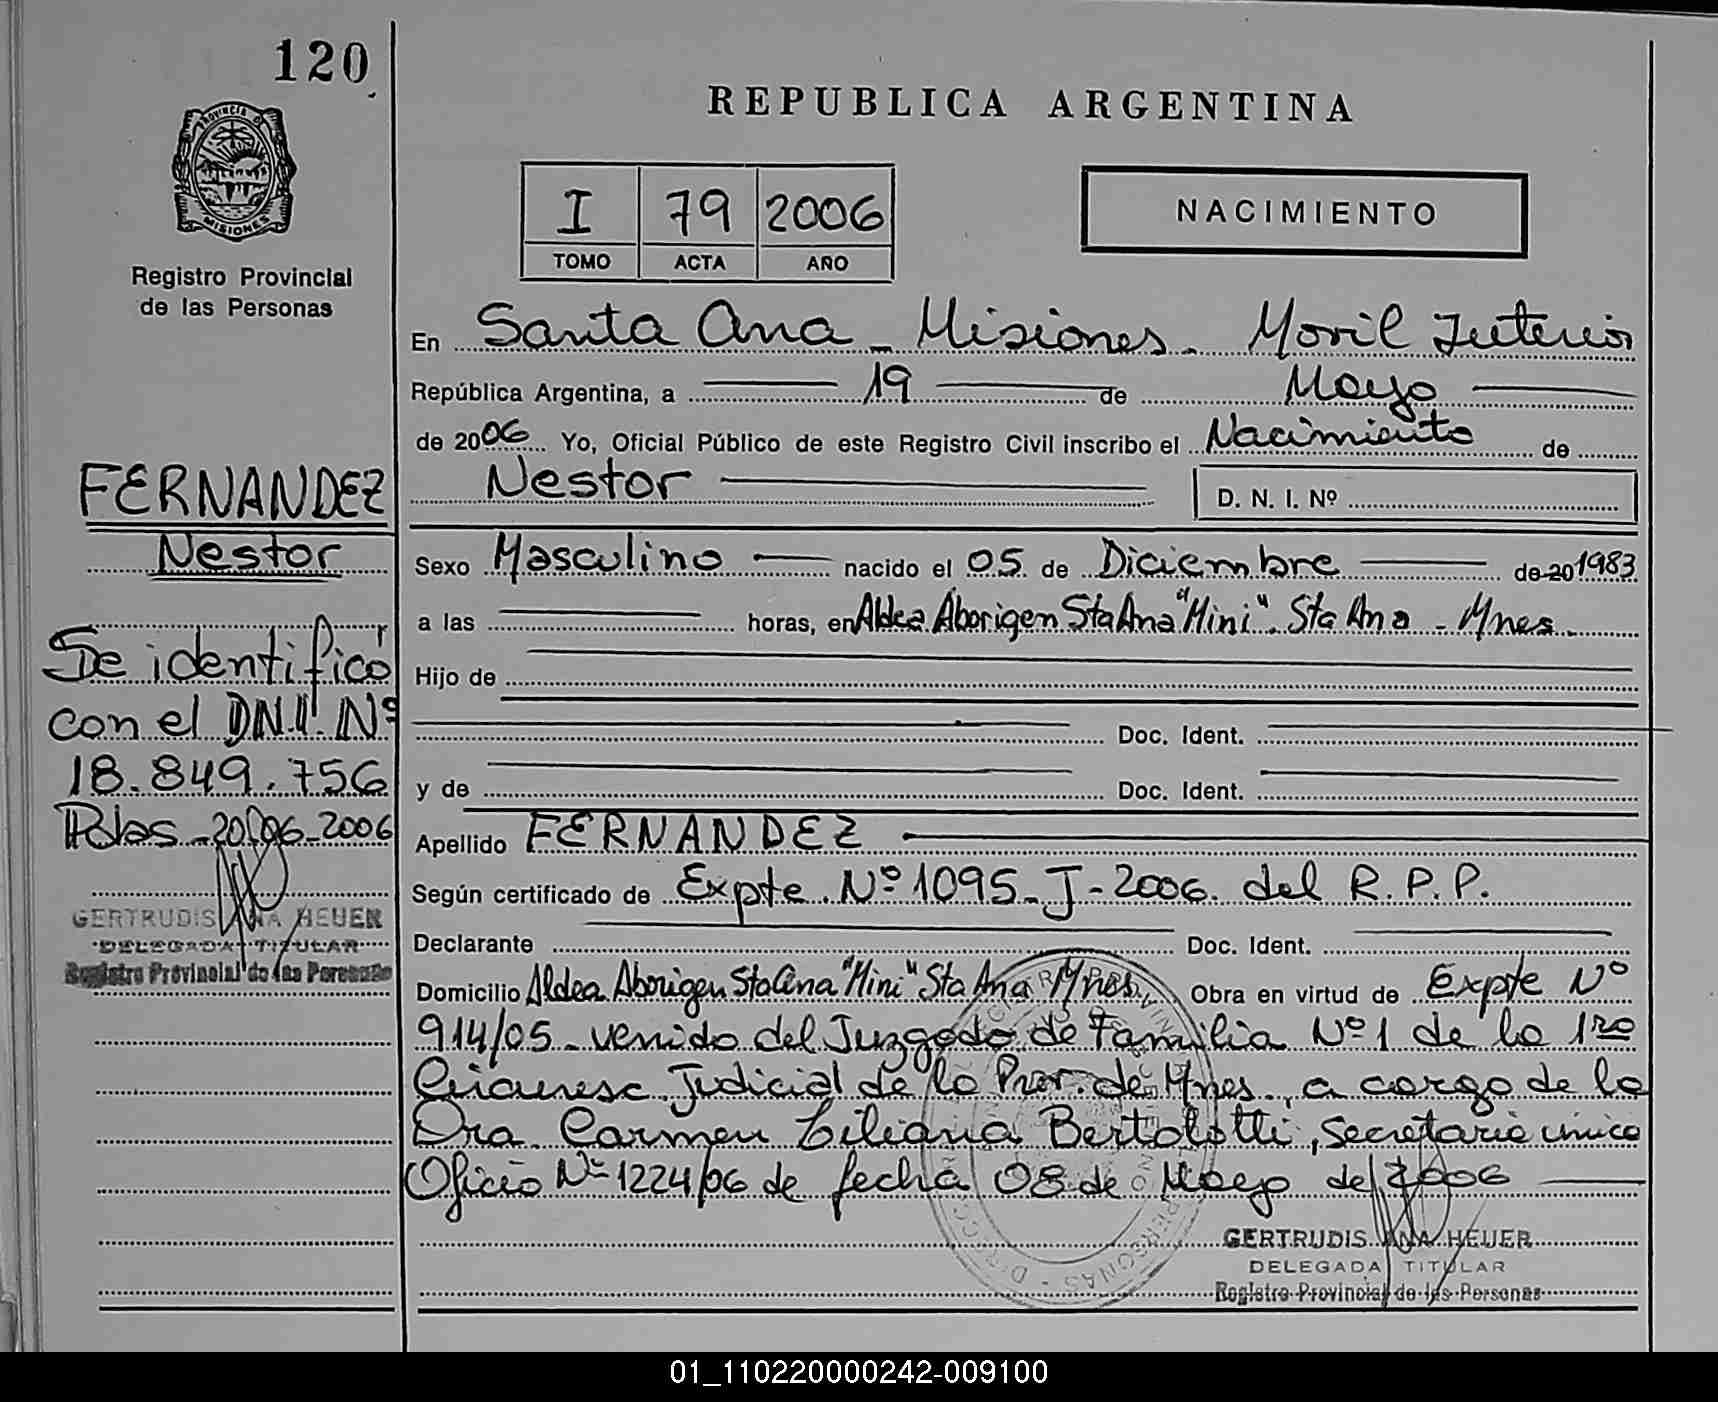 120
PROVINCIA DE
MISIONES
Registro Provincial
de las Personas
FERNANDEZ
Nestor
Se identificó
con el D.N.I. Nº
18.849.756
Pdas - 20/06-2006
GERTRUDIS ANA HEUER
DELEGADA TITULAR
Registro Provincial de las Personas
REPUBLICA ARGENTINA
I 79 2006
TOMO ACTA AÑO
NACIMIENTO
En Santa Ana - Misiones. Movil Interior
República Argentina, a 19 de Mayo
de 2006 Yo, Oficial Público de este Registro Civil inscribo el Nacimiento de
Nestor D. N. I. Nº
Sexo Masculino nacido el 05 de Diciembre de 20 1983
a las horas, en Aldea Aborigen Sta Ana "Mini". Sta Ana - Mnes.
Hijo de
Doc. Ident.
y de Doc. Ident.
Apellido FERNANDEZ
Según certificado de Expte. Nº 1095-J-2006. del R.P.P.
Declarante Doc. Ident.
Domicilio Aldea Aborigen Sta Ana "Mini" Sta Ana Mnes. Obra en virtud de Expte Nº
914/05 - venido del Juzgado de Familia Nº 1 de la 1ra
Circunsc. Judicial de la Prov. de Mnes., a cargo de la
Dra. Carmen Liliana Bertolotti, Secretaria única
Oficio Nº 1224/06 de fecha 08 de Mayo de 2006
GERTRUDIS ANA HEUER
DELEGADA TITULAR
Registro Provincial de las Personas
01_110220000242-009100